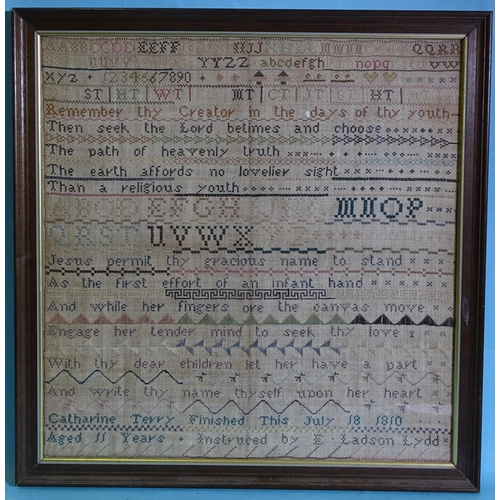 AABBCCDD EEFF HIJJ MM QQRR
UU YYZZ abcdefgh nopq vw
xyz + 1234567890
ST HT WT MT CT JT ST HT
Remember thy Creator in the days of thy youth
Then seek the Lord betimes and choose
The path of heavenly truth
The earth affords no lovelier sight
Than a religious youth
EFGH MNOP
QRST UVWX YZ
Jesus permit thy gracious name to stand
As the first effort of an infant hand
And while her fingers ore the canvas move
Engage her tender mind to seek thy love
With thy dear children let her have a part
And write thy name thyself upon her heart
Catharine Terry Finished This July 18 1810
Aged 11 Years Instruced by E Ladson Lydd